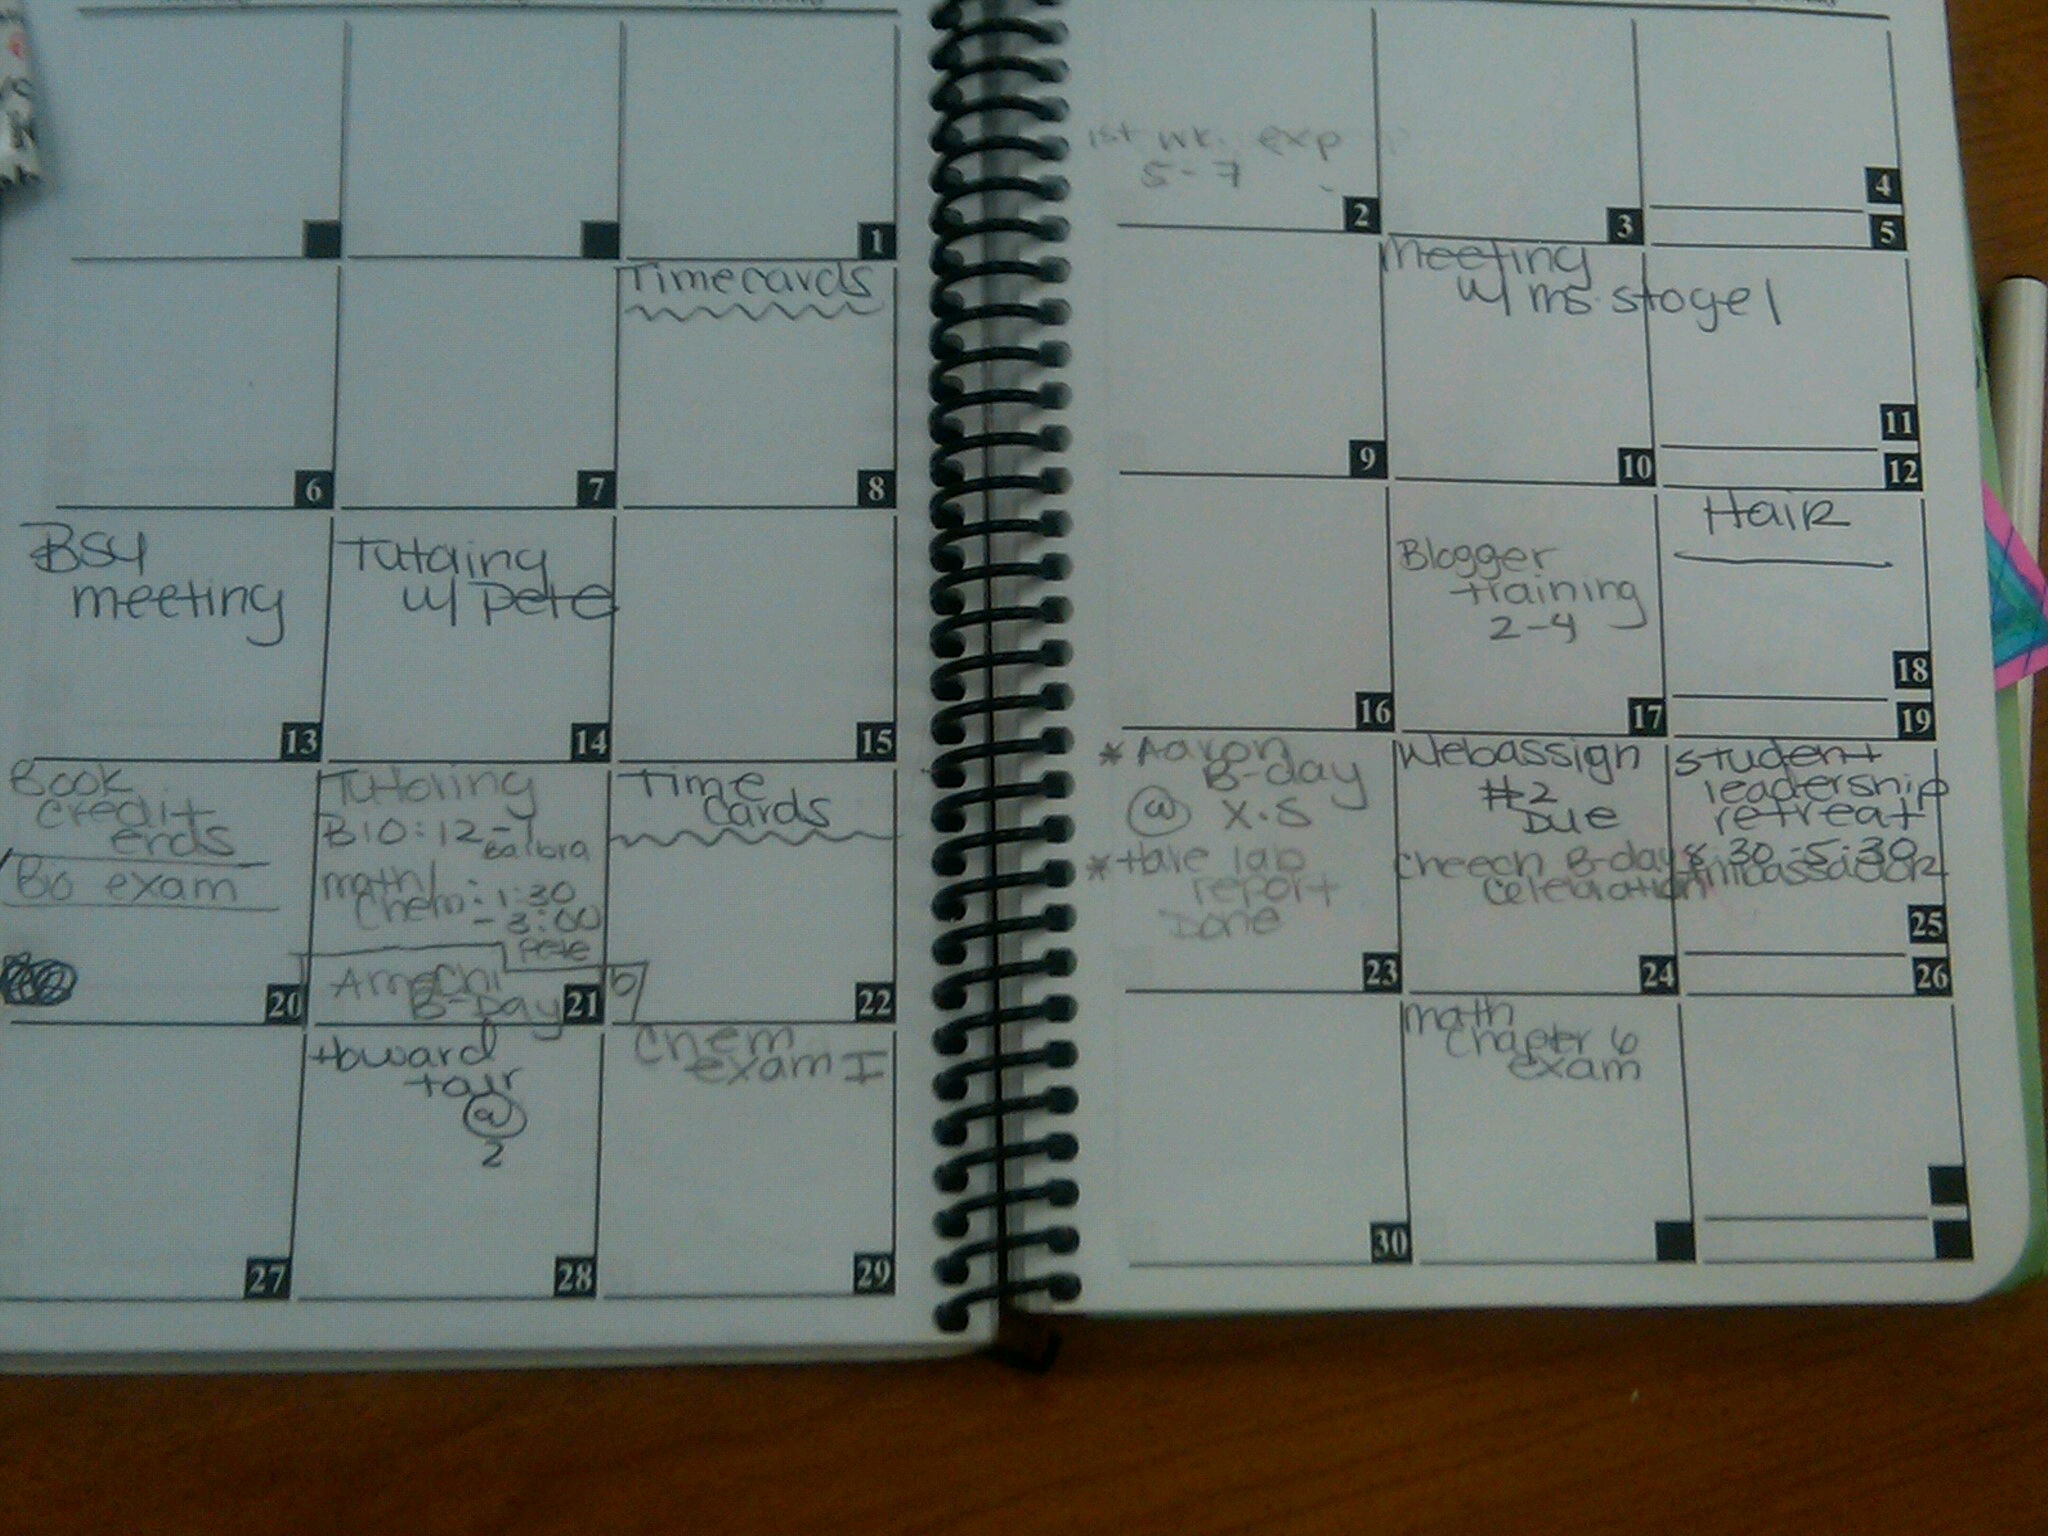 1
1st wk. exp
5-7
2
3
4
5
6
7
Timecards
8
9
Meeting
w/ ms. stogel
10
11
12
BSU
meeting
13
Tutoring
w/ Pete
14
15
16
Blogger
training
2-4
17
Hair
18
19
Book
credit
ends
Bio exam
20
Tutoring
BIO: 12-
math/
Chem: 1:30
- 3:00
Pete
Amechi
B-Day
21
Time
cards
22
* Aaron
B-day
@ X.S
* Have lab
report
Done
23
Webassign
#2
Due
Cheech B-day
celebration
24
student
leadership
retreat
8:30-5:30
25
26
27
Howard
tour
@
2
28
Chem
exam I
29
30
math
Chapter 6
exam